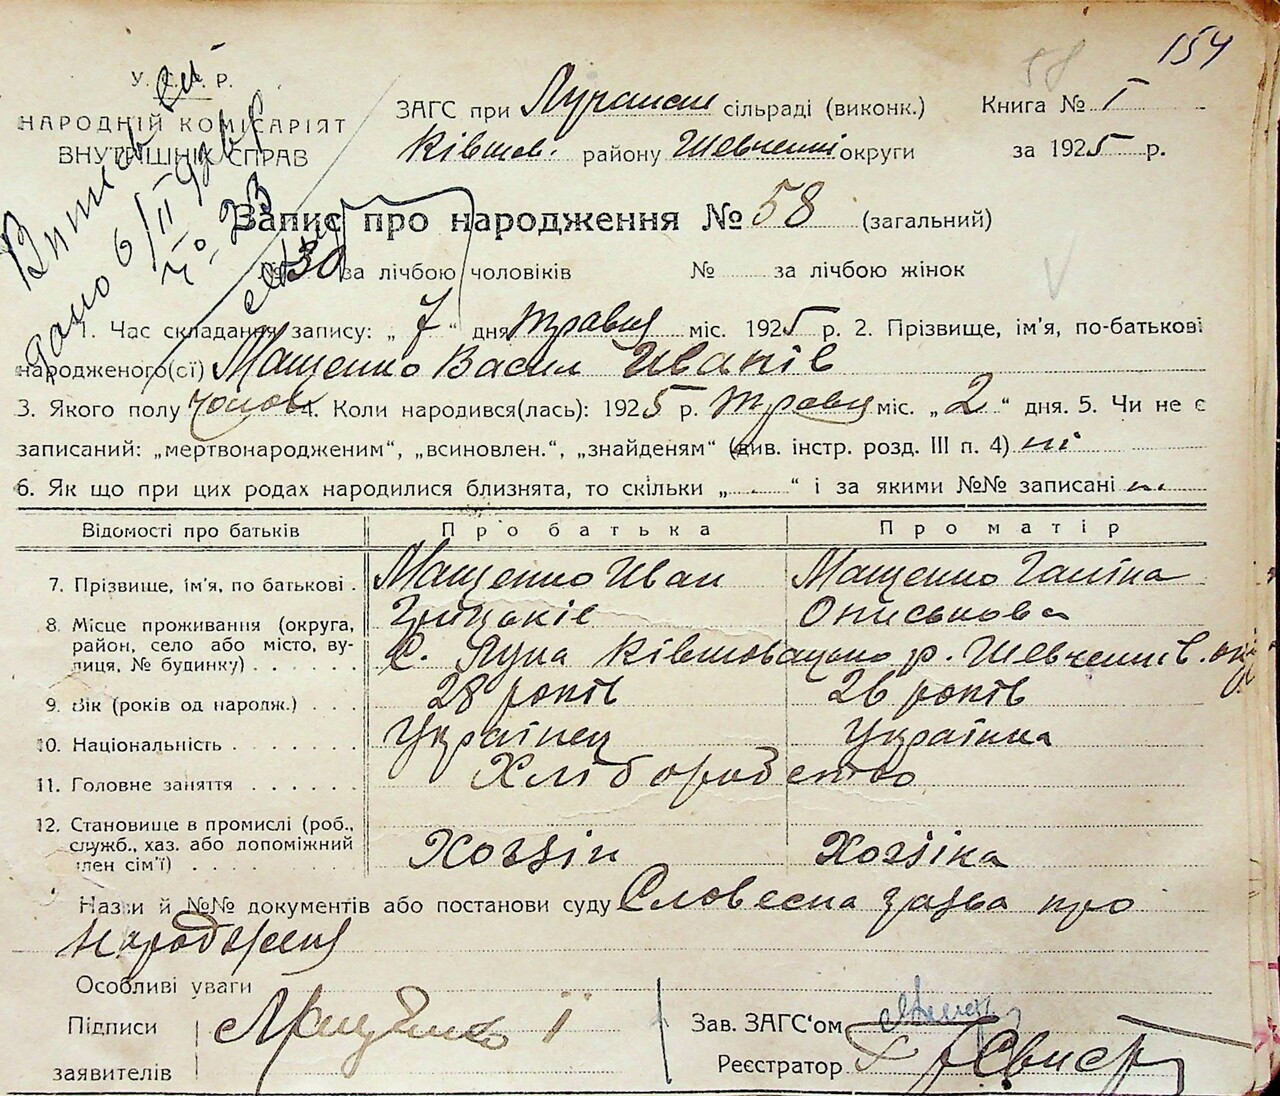 154
58
У. С. Р. Р.
НАРОДНІЙ КОМІСАРІЯТ
ВНУТРІШНІХ СПРАВ
ЗАГС при Луганськ сільраді (виконк.)
Книга № I
Ківшов. району Шевченкі округи
за 1925 р.
Дано 6/II
№ 23
Запис про народження № 58 (загальний)
№ 30 за лічбою чоловіків № за лічбою жінок
1. Час складання запису: „ 7 “ дня травня міс. 1925 р. 2. Прізвище, ім'я, по-батькові
народженого(сї) Мащенко Васил Иванів
3. Якого полу чолов. 4. Коли народився(лась): 1925 р. травня міс. „ 2 “ дня. 5. Чи не є
записаний: „мертвонародженим“, „всиновлен.“, „знайденям“ (див. інстр. розд. III п. 4) ні
6. Як що при цих родах народилися близнята, то скільки „ “ і за якими №№ записані
Відомості про батьків Про батька Про матір
7. Прізвище, ім'я, по батькові . Мащенко Иван Мащенко Ганна
Грицьків Ониськова
8. Місце проживання (округа,
район, село або місто, ву-
лиця, № будинку) . . . . . С. Лука Ківшовацько р. Шевченків. окр
9. Вік (років од народж.) . . . 28 років 26 років
10. Національність . . . . . . . Українец Українка
11. Головне заняття . . . . . . Хліборобство
12. Становище в промислі (роб.,
служб., хаз. або допоміжний
член сім'ї) . . . . . . . . Хозяін Хозяіка
Назви й №№ документів або постанови суду Словесна заява про
народження
Особливі уваги
Підписи
заявителів
Мащенко І
Зав. ЗАГС'ом
Реєстратор